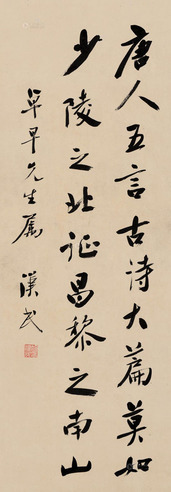 唐人五言古诗大篇莫如
少陵之北征昌黎之南山
早早先生属
汉民